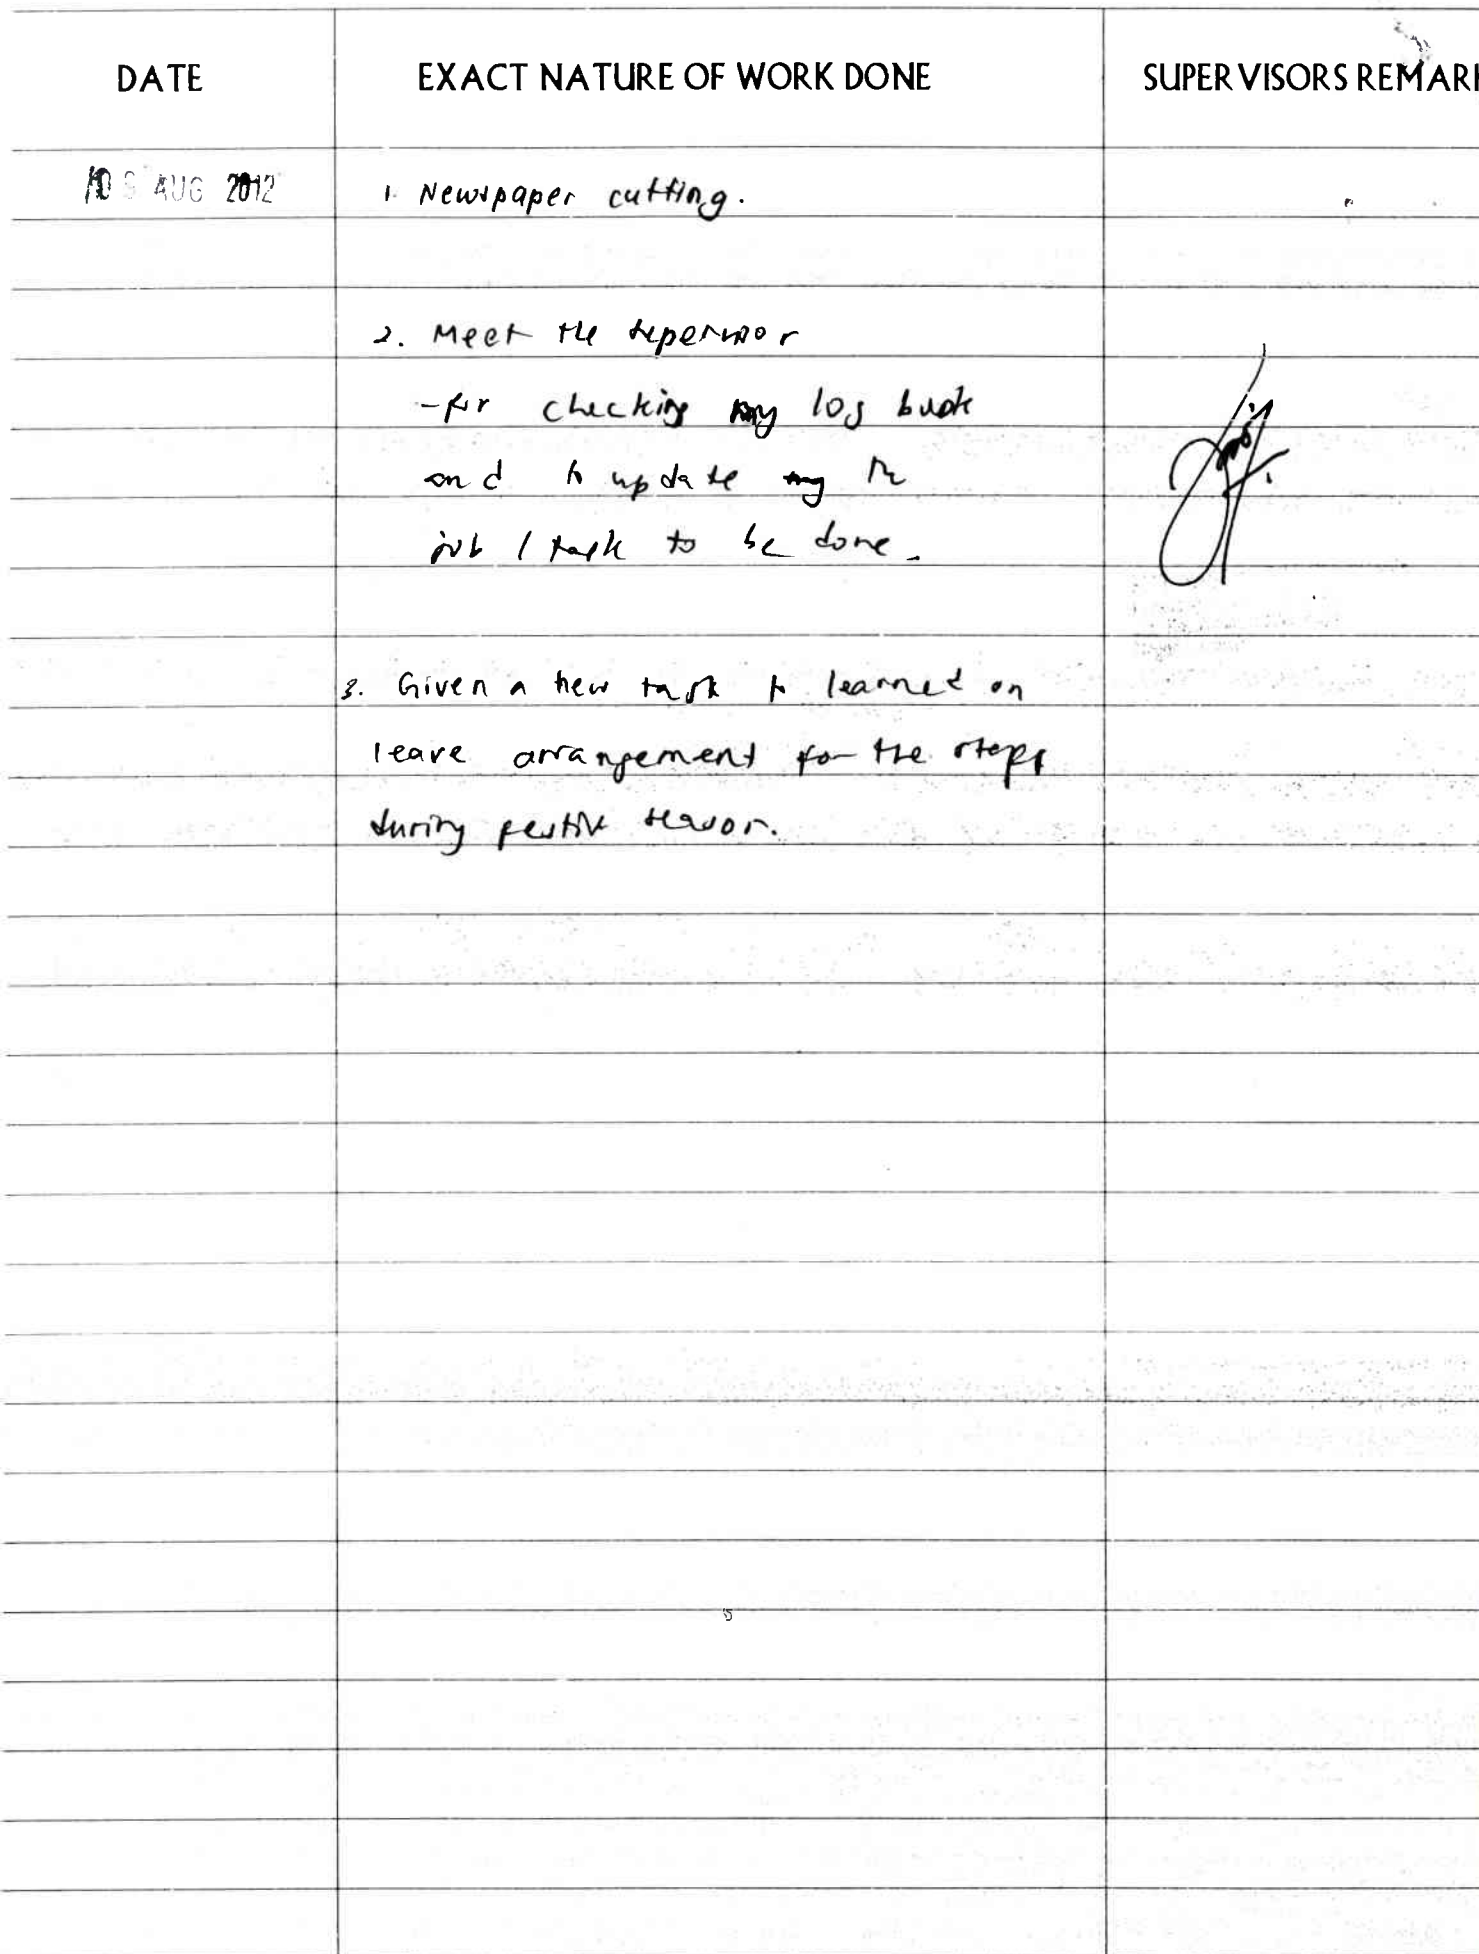 DATE EXACT NATURE OF WORK DONE SUPERVISORS REMAR
AUG 2012 1. Newspaper cutting.
2. Meet the supervisor
- for checking my log book
and to update the
job / task to be done.
3. Given a new task to learned on
leave arrangement for the
during festive season.